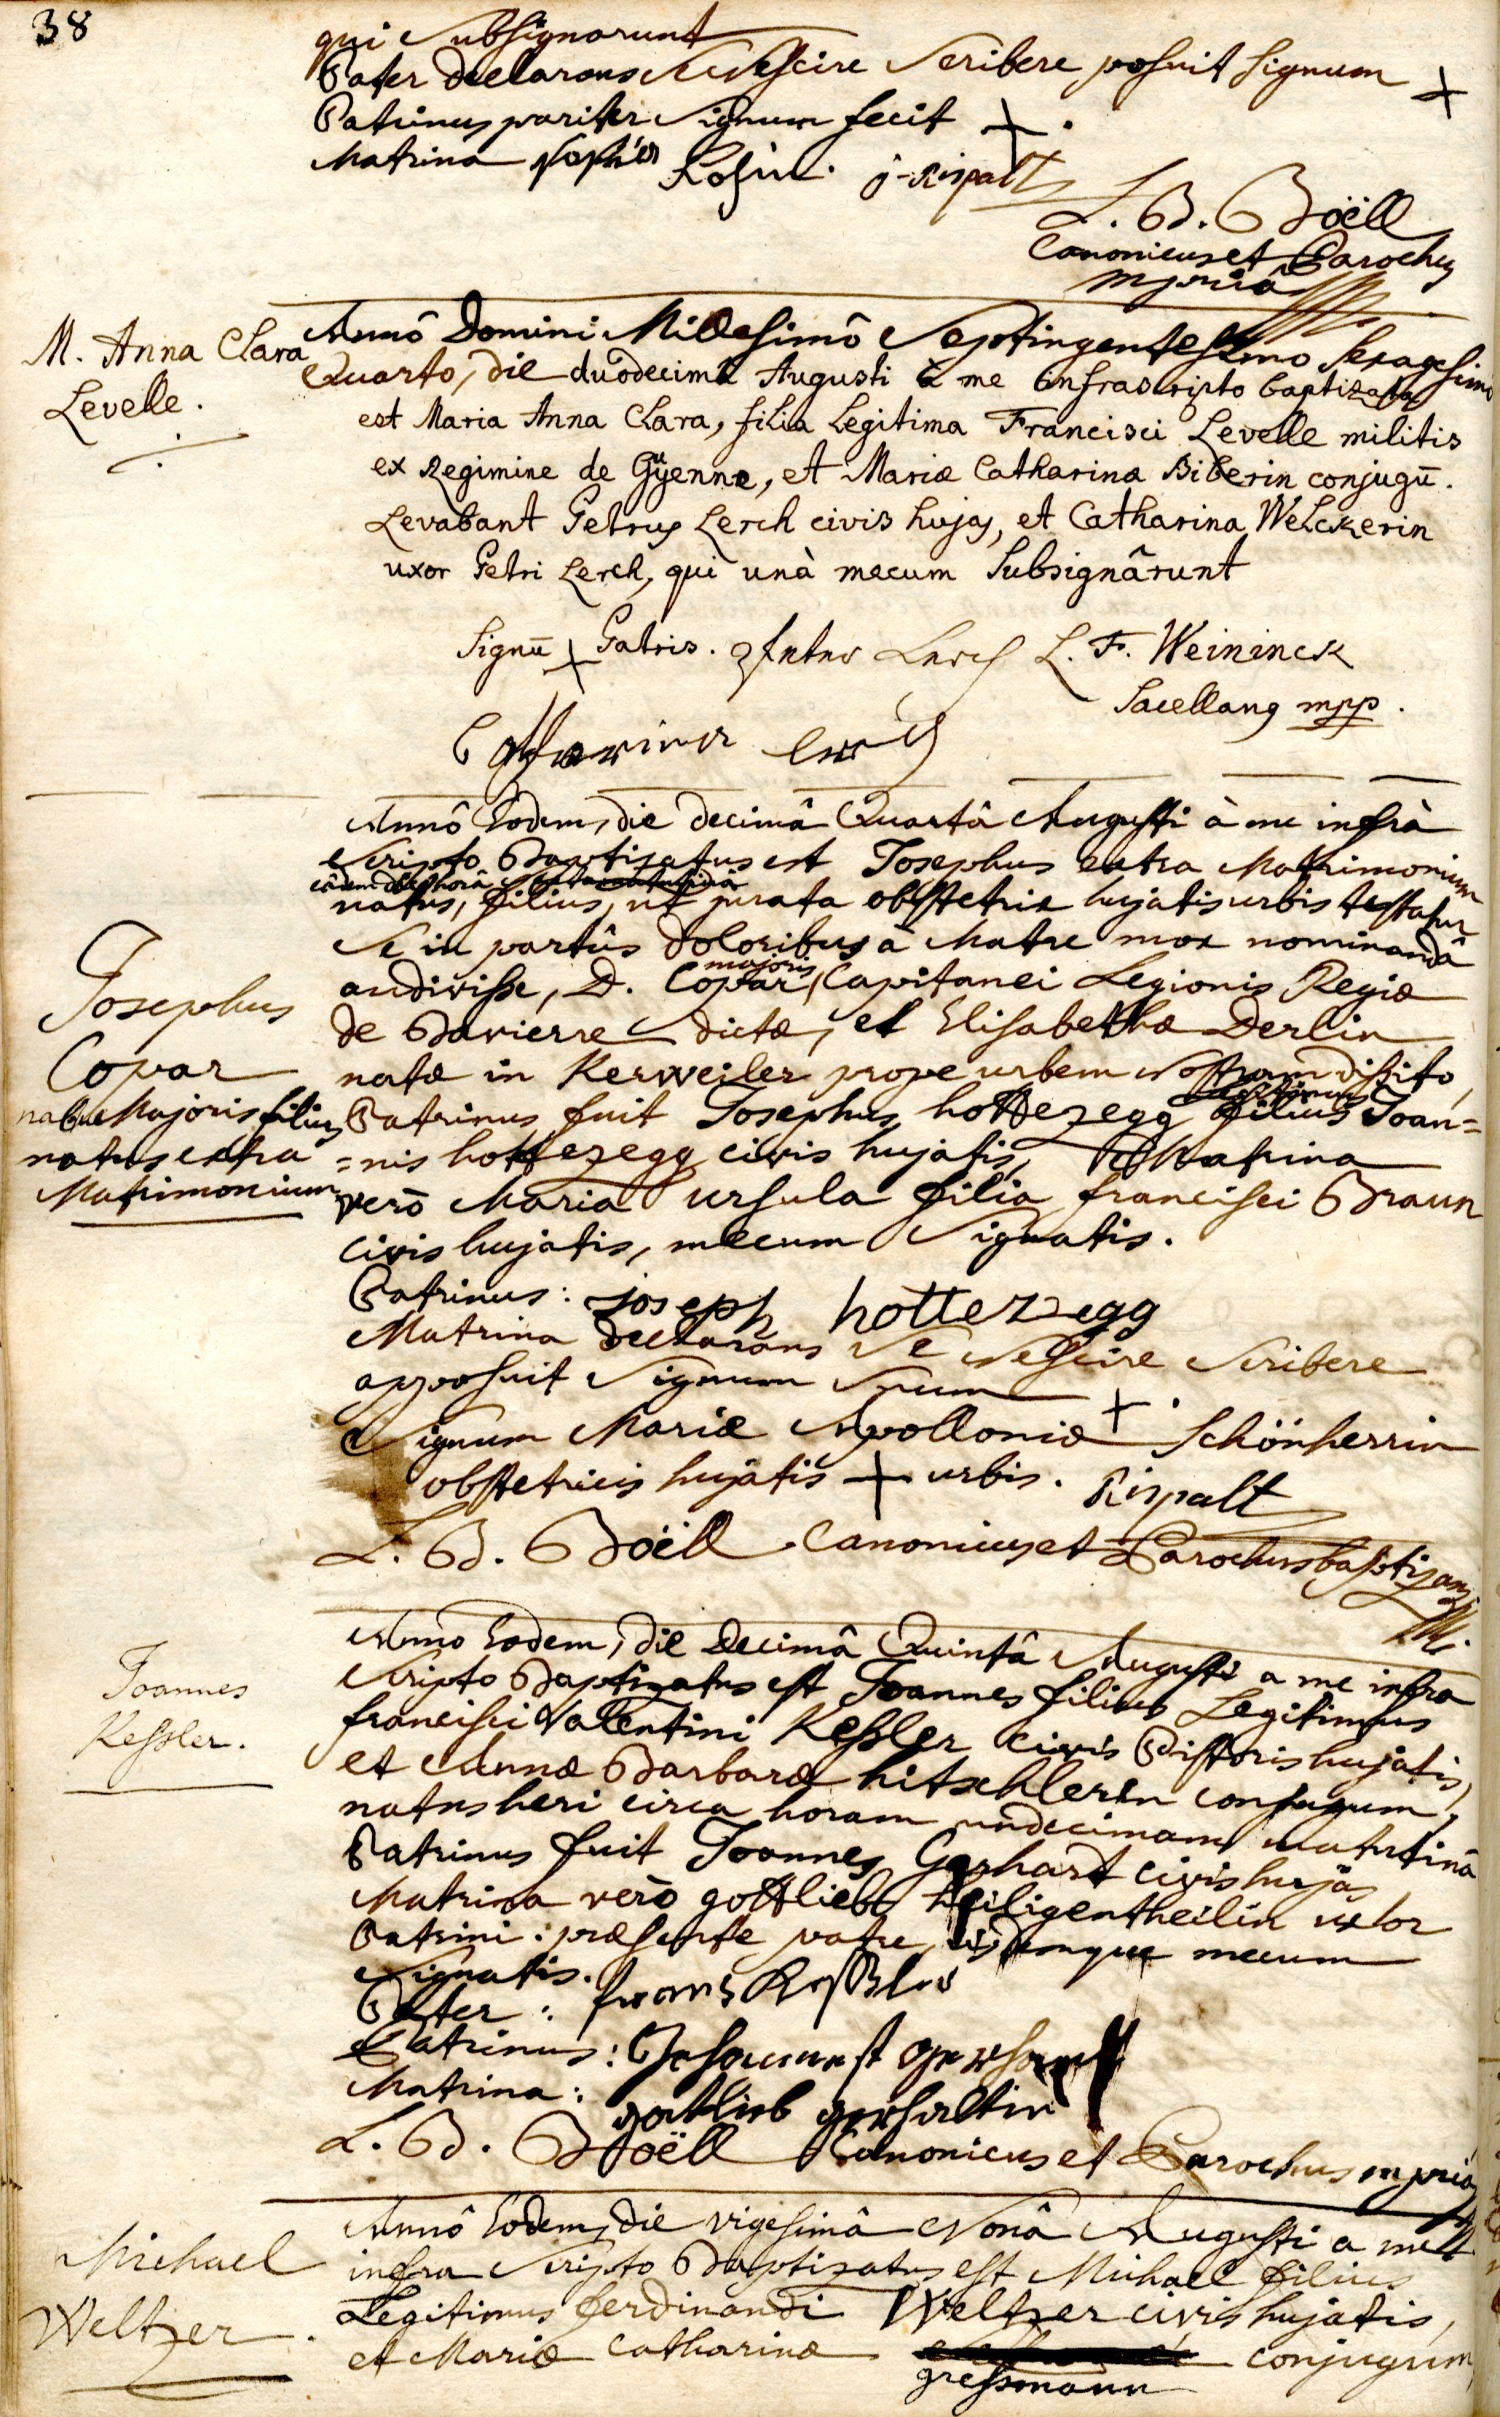 38
qui subsignarunt
Pater declarans se nescire scribere posuit signum +
Patrinus pariter signum fecit +.
Matrina sophia Rosin. j-Rispalt
L. B. Boëll
Canonicus et Parochus
mpriâ
M. Anna Clara
Levelle.
Annô Domini Millesimô Septingentesimo sexagesimo
Quarto, die duodecimâ Augusti à me infrascripto baptizata
est Maria Anna Clara, filia Legitima Francisci Levelle militis
ex Regimine de Güyenne, et Mariæ Catharinæ Biberin conjugū.
Levabant Petrus Lerch civis hujas, et Catharina Welckerin
uxor Petri Lerch, qui unà mecum subsignârunt
Signū + Patris. Peter Lerch L. F. Weininck
Sacellanus mpp.
Catharina Lerch
Annô Eodem, die decimâ Quartâ Augusti à me infrà
scripto Baptizatus est Josephus extra Matrimonium
eâdem die horâ
natus, filius, ut jurata obstetrix hujatis urbis testatur
se in partûs doloribus à Matre mox nominandâ
majoris
audivisse, D. Copar, Capitanei Legionis Regiæ
de Bavierre dictæ, et Elisabethæ Derlin
natæ in Kerweiler prope urbem nostram dissito,
Patrinus fuit Josephus hottezegg filius Joan=
=nis hottezegg civis hujatis, Matrina
verò Maria Ursula filia francisci Braun
civis hujatis, mecum signatis.
Josephus
Copar
Majoris filius
natus extra
Matrimonium
Patrinus: joseph hottezegg
Matrina declarans se nescire scribere
apposuit signum suum +.
Signum Mariæ Apolloniæ Schönherrin
obstetricis hujatis + urbis. Rispalt
L. B. Boëll Canonicus et Parochus baptizans
Joannes
Kessler.
Anno Eodem, die Decimâ Quintâ Augusti a me infra
scripto Baptizatus est Joannes filius Legitimus
francisci Valentini Kessler civis Pistoris hujatis,
et Annæ Barbaræ hitschlerin conjugum,
natus heri circa horam undecimam matutinâ
Patrinus fuit Joannes Gerhart civis hujas
Matrina verò gottlieb heiligentheilin uxor
Patrini: præsente patre, iisdemque mecum
signatis.
Pater: frans Kessler
Patrinus: Johannest gerhart
Matrina: gottlieb gerhaltin
L. B. Boëll Canonicus et Parochus mpriâ
Michael
Weltzer.
Annô Eodem, die vigesimâ Nonâ Augusti a me
infra scripto Baptizatus est Michael filius
Legitimus ferdinandi Weltzer civis hujatis,
et Mariæ Catharinæ conjugum
gressmann